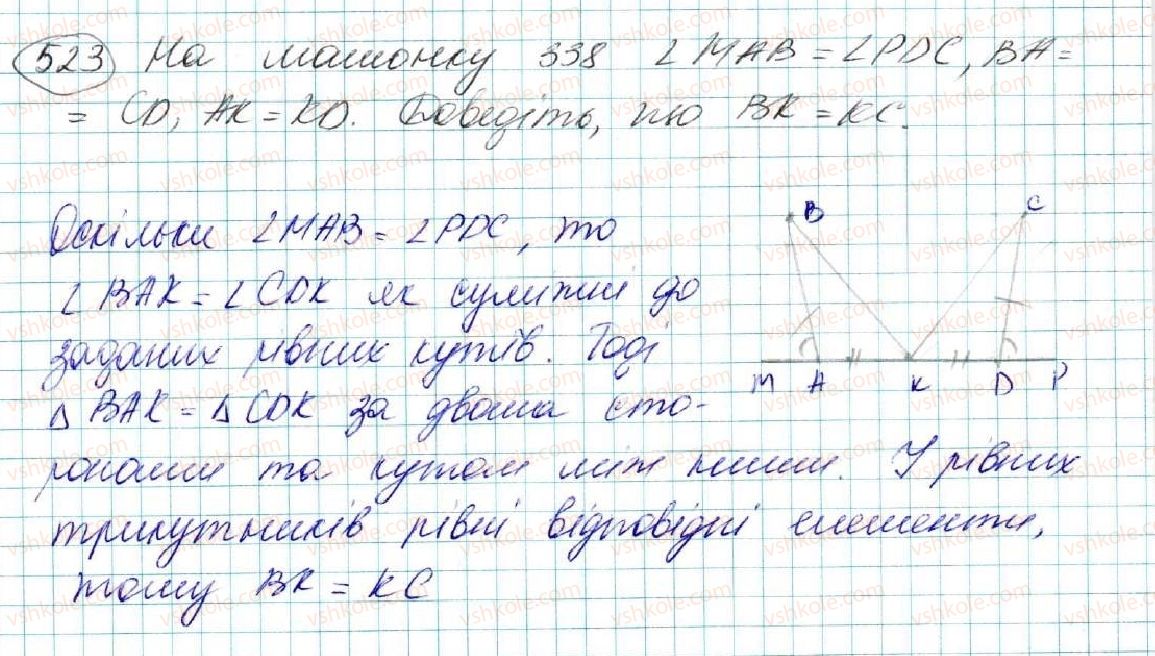 523 На малюнку 338 ∠MAB = ∠PDC, BA =
= CD, AK = KD. Доведіть, що BK = KC.
Оскільки ∠MAB = ∠PDC, то
∠BAK = ∠CDK як суміжні до
заданих рівних кутів. Тоді
△BAK = △CDK за двома сто-
ронами та кутом між ними. У рівних
трикутників рівні відповідні елементи,
тому BK = KC
B C
M A K D P